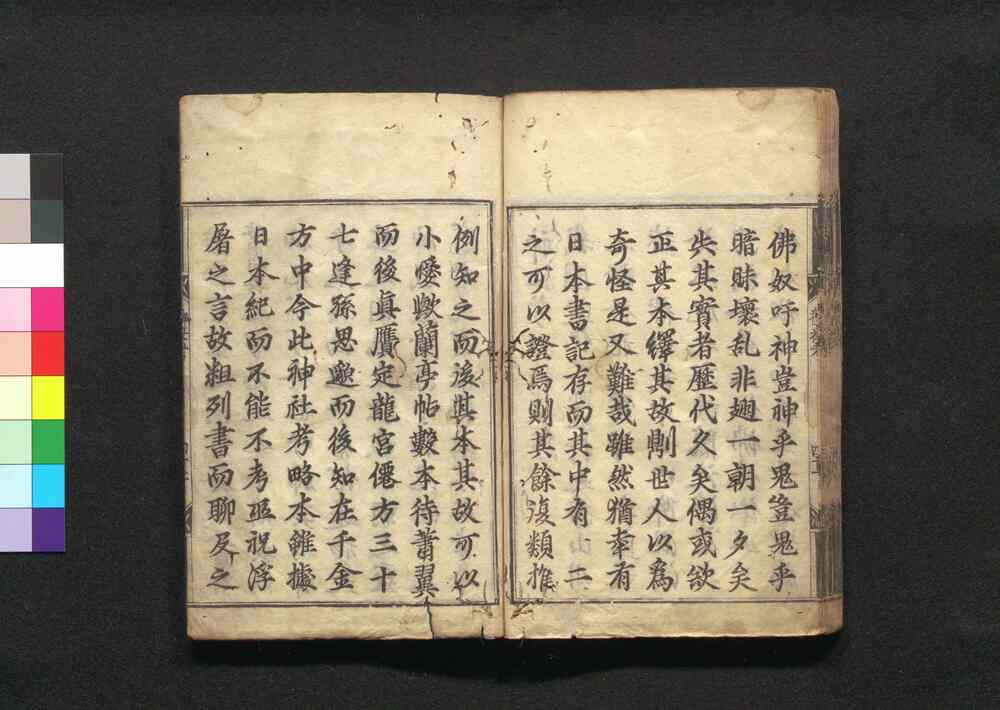 佛奴吁神豈神乎鬼豈鬼乎
暗昧壞乱非翅一朝一夕矣
失其實者歷代久矣偶或欲
正其本繹其故則世人以為
奇怪是又難哉雖然猶幸有
日本書記存而其中有一二
之可以證焉則其餘復類推
例知之而後其本其故可以
小愛歟蘭亭帖數本待蕭翼
而後真贋定龍宮僊方三十
七逢孫思邈而後知在千金
方中今此神社考略本雖據
日本紀而不能不考巫祝浮
屠之言故粗列書而聊及之